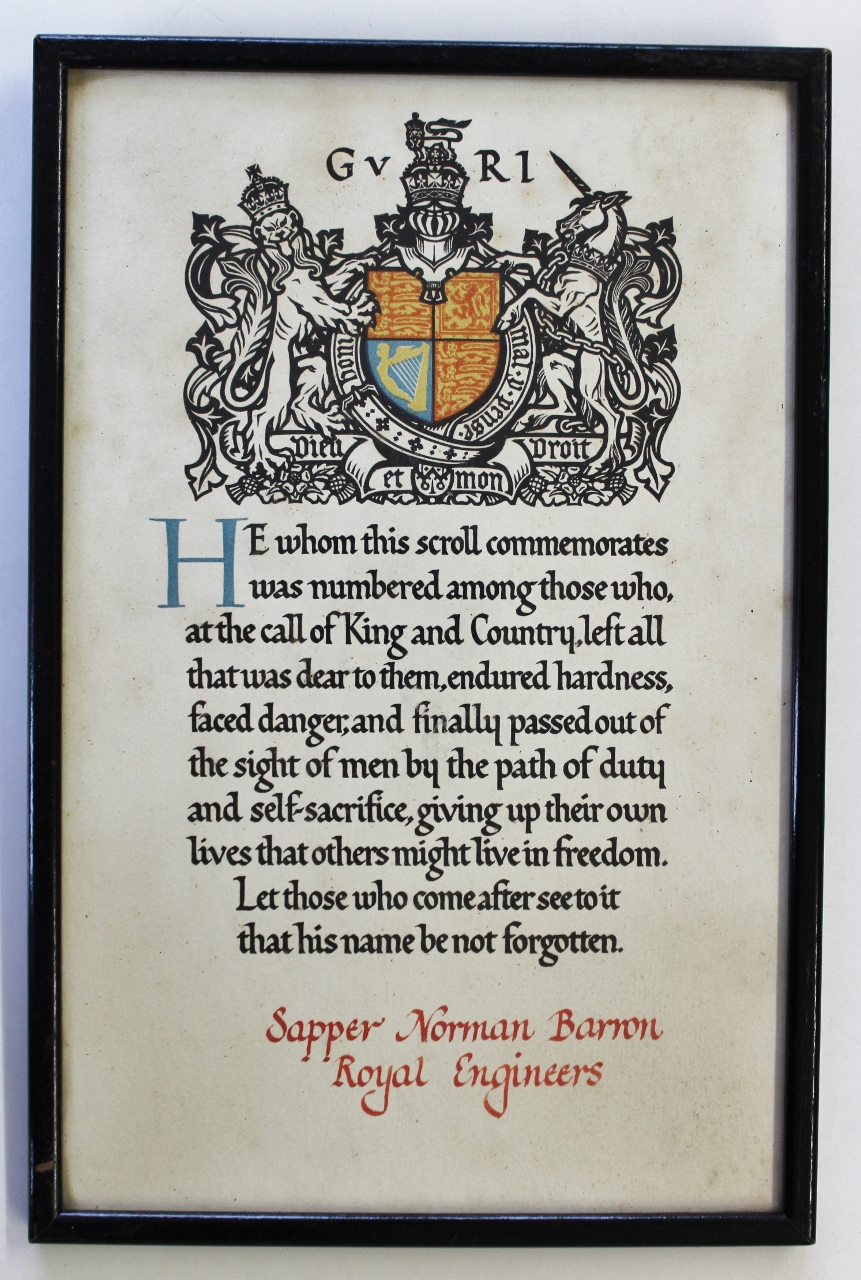 GV RI
Honi
mal·y·pense·
Dieu
Droit
et mon
HE whom this scroll commemorates
was numbered among those who,
at the call of King and Country, left all
that was dear to them, endured hardness,
faced danger, and finally passed out of
the sight of men by the path of duty
and self-sacrifice, giving up their own
lives that others might live in freedom.
Let those who come after see to it
that his name be not forgotten.
Sapper Norman Barron
Royal Engineers